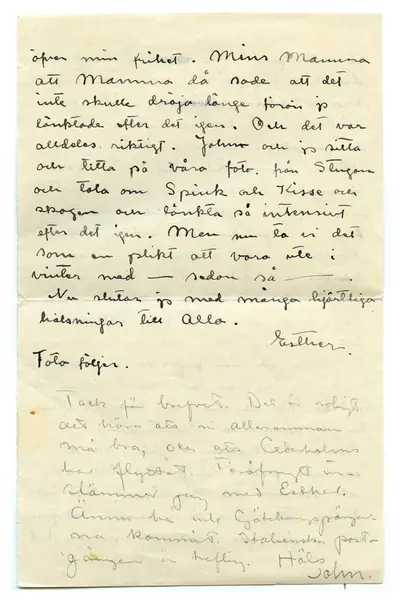 öfver min frihet. Mins Mamma
att Mamma då sade att det
inte skulle dröja länge förän jg
längtade efter det igen. Och det var
alldeles riktigt. John och jg sitta
och titta på våra foto. från Stugan
och tala om Spink och Kisse och
skogen och längta så intensivt
efter det igen. Men nu ta vi det
som en plikt att vara ute i
vinter med — sedan så — .
Nu slutar jg med många hjärtliga
hälsningar till Alla.
Esther.
Foto följer.
Tack för brefvet. Det är roligt
att höra att ni allesamman
må bra, och att Cederholms
ha flyttat. För öfrigt in-
stämmer jag med Esther.
Ännu ha inte Göteborgspängar-
na kommit. Italienska post-
gången är heflig. Häls
John.